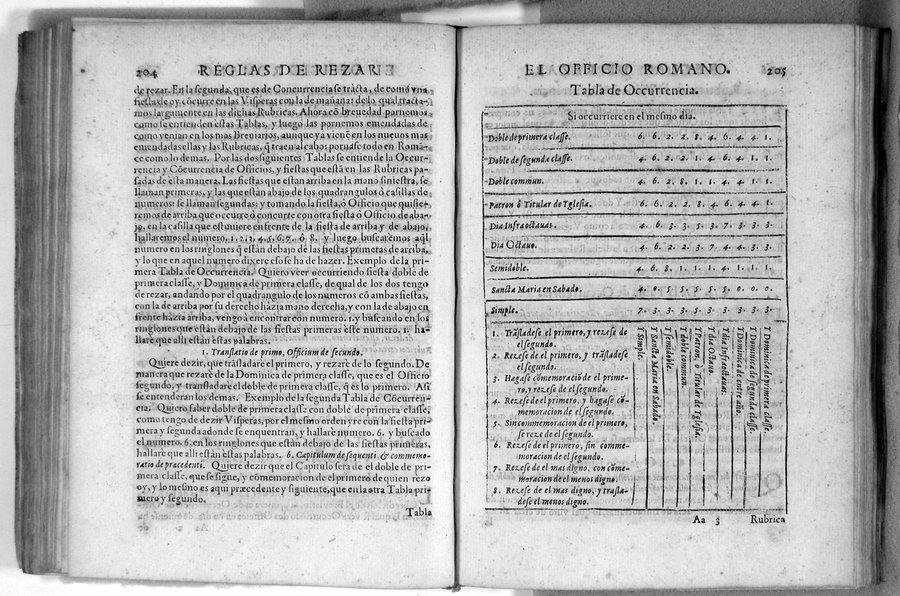 204 REGLAS DE REZAR
de rezar. En la segunda, que es de Concurrencia se tràcta, de como vna
fiesta de oy, cōcurre en las Visperas con la de mañana: de lo qual tracta-
mos largamente en las dichas Rubricas. Ahora cō breuedad parnemos
como se entienden estas Tablas, y luego las pornemos emendadas de
como venian en los mas Breuiarios, aunque ya vienē en los nueuos mas
emendadas ellas y las Rubricas, q̄ traen al cabo: pornase todo en Romā-
ce como lo demas. Por las dos siguientes Tablas se entiende la Occur-
rencia y Cōcurrencia de Officios, y fiestas que està en las Rubricas pa-
sadas de esta manera. Las fiestas que estan arriba en la mano siniestra, se
llaman primeras, y las que estàn abaxo de los quadrangulos ò casillas de
numeros: se llaman segundas; y tomando la fiesta, ò Officio que quisie-
remos de arriba que ocurre ò concurre con otra fiesta ò Officio de aba-
jo, en la casilla que estuuiere en frente de la fiesta de arriba y de abajo,
hallaremos el numero, 1. 2. 3. 4. 5. 6. 7. ò 8. y luego buscaremos aq̄l
numero en los ringlones q̄ estàn debajo de las fiestas primeras de arriba,
y lo que en aquel numero dixere esso se ha de hazer. Exemplo de la pri-
mera Tabla de Occurrencia. Quiero veer occurriendo fiesta doble de
primera classe, y Dominica de primera classe, de qual de los dos tengo
de rezar, andando por el quadrangulo de los numeros cō ambas fiestas,
con la de arriba por su derecho hàzia mano derecha, y con la de abajo en
frente hàzia arriba, vengo à encontrar con numero. 1. y buscando en los
ringlones que estàn debajo de las fiestas primeras este numero. 1. ha-
llare que alli estàn estas palabras.
1. Translatio de primo, Officium de secundo.
Quiere dezir, que trasladare el primero, y rezarè de lo segundo. De
manera que rezarè de la Dominica de primera classe, que es el Officio
segundo, y transladarè el doble de primera classe, q̄ es lo primero. Assi
se entenderàn los demas. Exemplo de la segunda Tabla de Cōcurrēn-
cia. Quiero saber doble de primera classe con doble de primera classe,
como tengo de dezir Visperas, por el mesmo orden yre con la fiesta pri-
mera y segunda adonde se encuentran, y hallarè numero. 6. y buscado
el numero. 6. en los ringlones que estàn debajo de las fiestas primeras,
hallarè que alli estàn estas palabras. 6. Capitulum de sequenti & commemo-
ratio de præcedenti. Quiere dezir que el Capitulo sera de el doble de pri-
mera classe, que se sigue, y cōmemoracion de el primero de quien rezo
oy, y lo mesmo es aqui præcedente y siguiente, que en la otra Tabla pri-
mero y segundo.
Tabla
EL OFFICIO ROMANO. 205
Tabla de Occurrencia.
Si occurriere en el mesmo dia.
Doble de primera classe. 6. 6. 2. 2. 8. 4. 6. 4. 4. 1.
Doble de segunda classe. 4. 6. 2. 2. 1. 4. 6. 4. 1. 1.
Doble commun. 4. 6. 2. 8. 1. 1. 4. 4. 1. 1.
Patron ò Titular de Yglesia. 6. 6. 2. 2. 8. 4. 6. 4. 4. 1.
Dia Infraoctauas. 4. 6. 3. 3. 5. 3. 7. 3. 3. 3.
Dia Octauo. 4. 6. 2. 2. 3. 7. 4. 4. 3. 3.
Semidoble. 4. 6. 8. 1. 1. 1. 4. 1. 1. 1.
Sancta Maria en Sabado. 4. 0. 5. 5. 5. 5. 3. 0. 0. 0.
Simple. 7. 3. 3. 5. 3. 5. 3. 3. 3. 3.
1. Trāsladese el primero, y rezese de
el segundo.
2. Rezese de el primero, y trāsladese
el segundo.
3. Hagase cōmemoraciō de el prime-
ro, y rezese de el segundo.
4. Rezese de el primero, y hagase cō-
memoracion de el segundo.
5. Sin commemoracion de el primero,
se reze de el segundo.
6. Rezese de el primero, sin comme-
moracion de el segundo.
7. Rezese de el mas digno, con cōme-
moracion de el menos digno.
8. Rezese de el mas digno, y trasla-
dese el menos digno.
Y Simple.
Y Sancta Maria en Sabado.
Y Semidoble.
Y doble commun.
Y Patron, ò Titular de Yglesia.
Y dia Octauo.
Y dia Infraoctauas.
Y Dominica de entre año.
Y Dominica de segunda classe.
Y Dominica de primera classe.
Aa 3 Rubrica